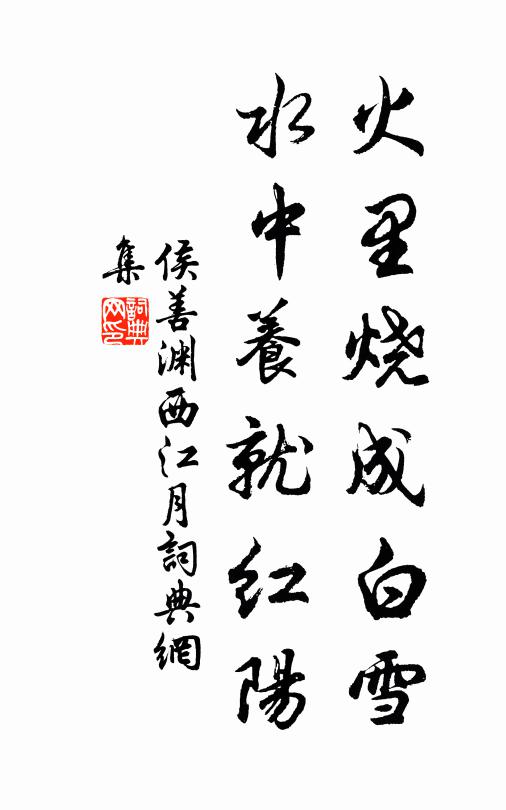 火里烧成白雪
水中養就红陽
侯善渊西江月詞典網
集
詞典网印